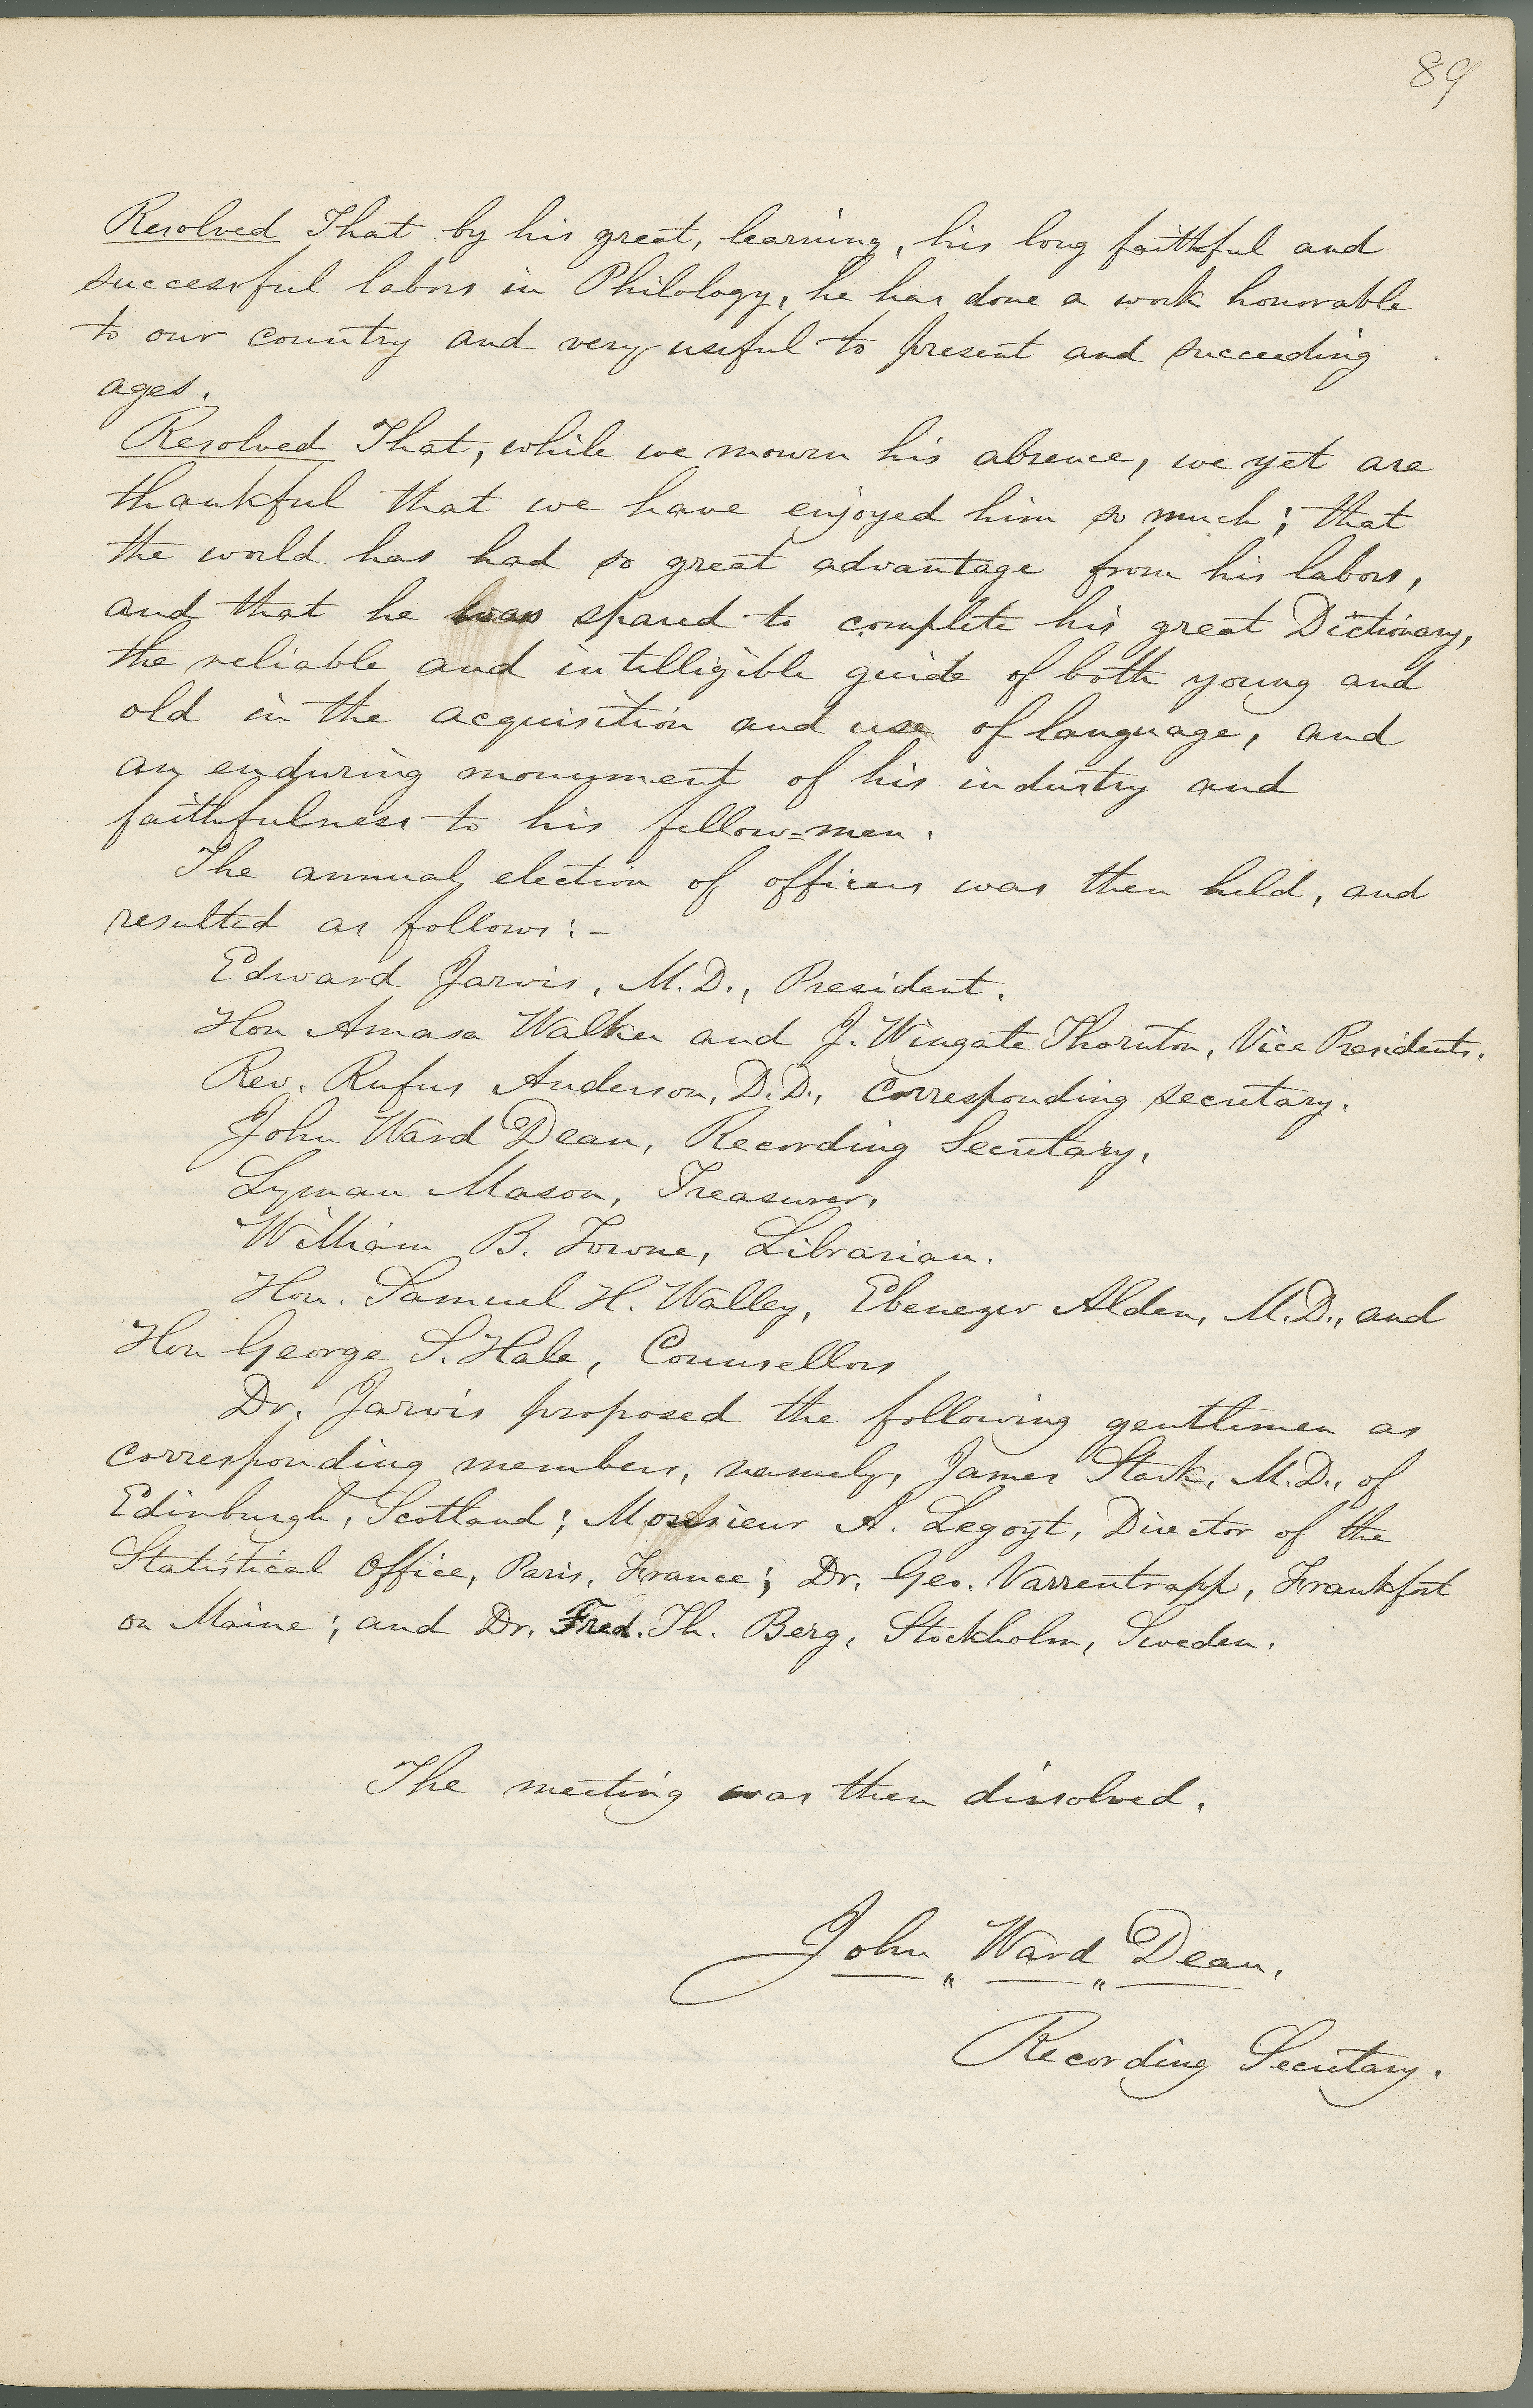 89
Resolved That by his great, learning, his long faithful and
successful labors in Philology, he has done a work honorable
to our country and very useful to present and succeeding
ages.
Resolved That, while we mourn his absence, we yet are
thankful that we have enjoyed him so much; that
the world has had so great advantage from his labors,
and that he was spared to complete his great Dictionary,
the reliable and intelligible guide of both young and
old in the acquisition and use of language, and
an enduring monument of his industry and
faithfulness to his fellow=men.
The annual election of officers was then held, and
resulted as follows:-
Edward Jarvis, M.D., President.
Hon Amasa Walker and J. Wingate Thornton, Vice Presidents.
Rev. Rufus Anderson, D.D., Corresponding Secretary.
John Ward Dean, Recording Secretary.
Lyman Mason, Treasurer.
William B. Towne, Librarian.
Hon. Samuel H. Walley, Ebenezer Alden, M.D., and
Hon George S. Hale, Counsellors
Dr. Jarvis proposed the following gentlemen as
corresponding members, namely, James Stark, M.D., of
Edinburgh, Scotland; Monsieur A. Legoyt, Director of the
Statistical Office, Paris, France; Dr. Geo. Varrentrapp, Frankfort
on Maine; and Dr. Fred. Th. Berg, Stockholm, Sweden.
The meeting was then dissolved.
John Ward Dean,
Recording Secretary.